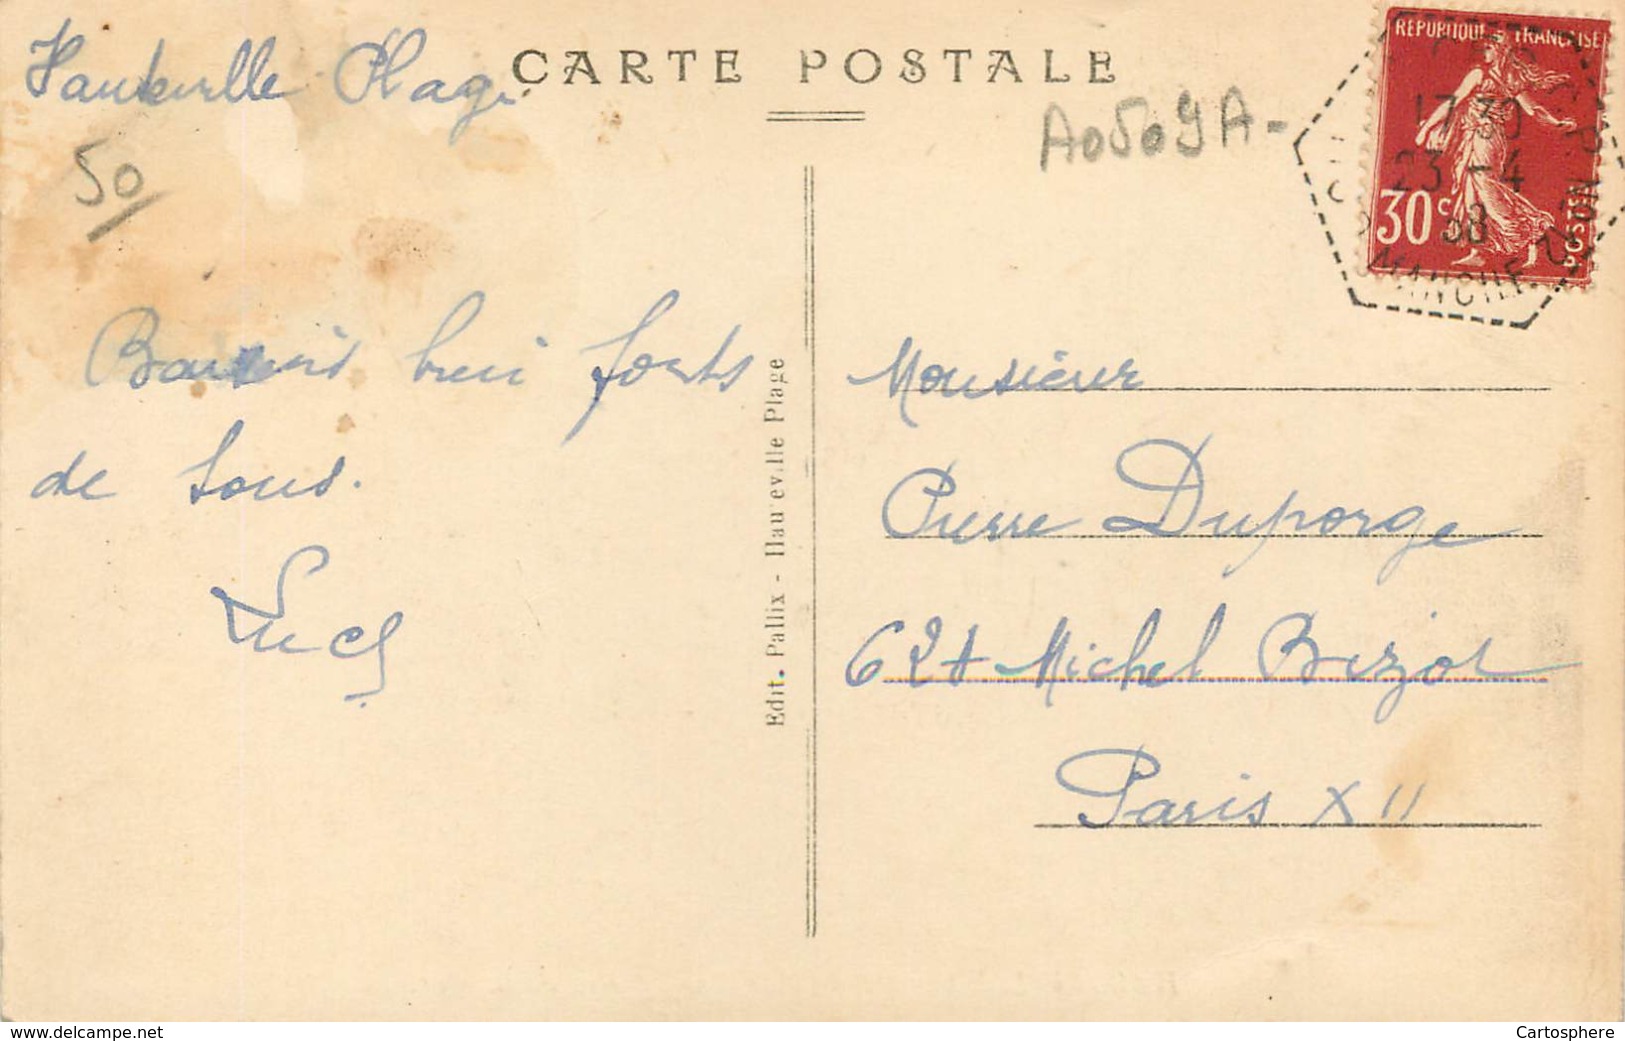 Hauteville Plage
CARTE POSTALE
A0509A-
50
REPUBLIQUE FRANCAISE
30c
POSTES
17 30
23 -4
38
MANCHE
Baisers bien forts
de tous.
Edit. Pallix - Hauteville Plage
Monsieur
Pierre Duporge
62 A Michel Bizot
Paris XII
www.delcampe.net
Cartosphere